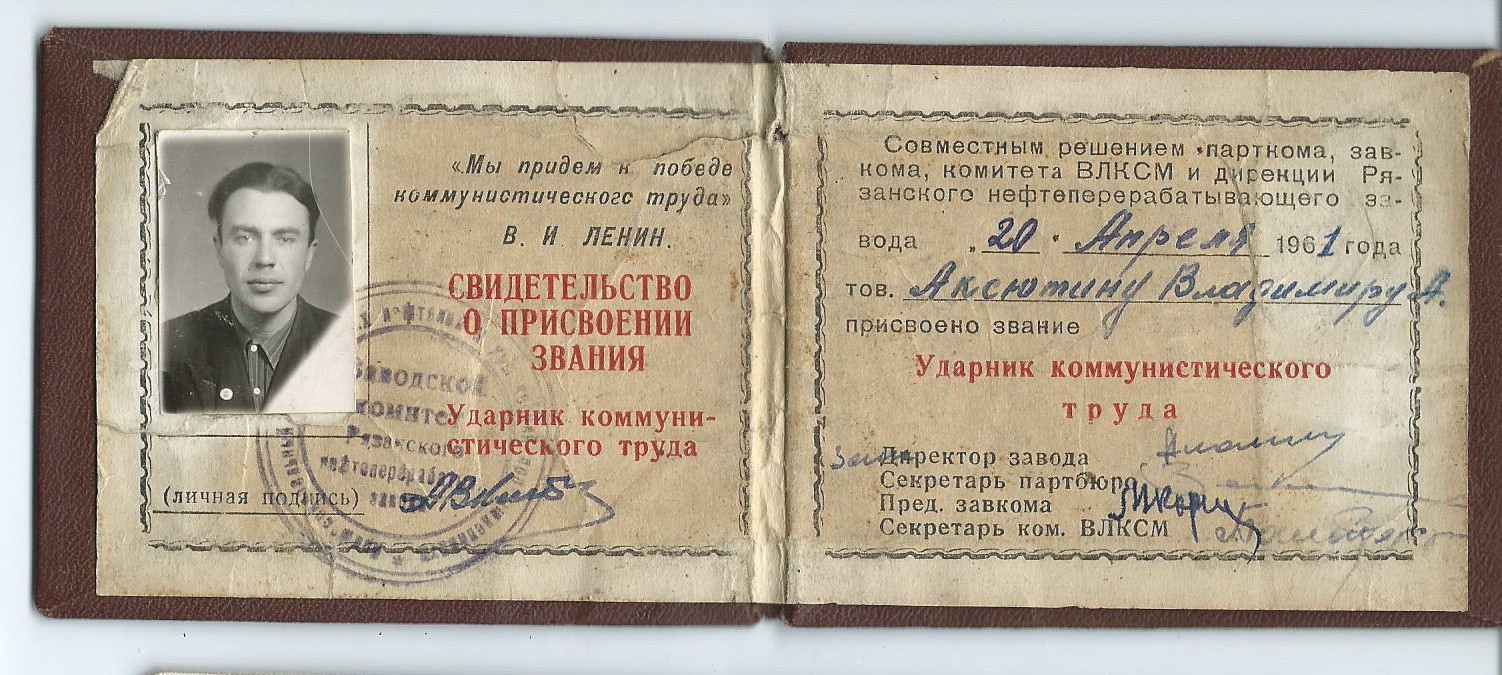 «Мы придем к победе
коммунистического труда»
В. И. ЛЕНИН.
СВИДЕТЕЛЬСТВО
О ПРИСВОЕНИИ
ЗВАНИЯ
Ударник коммуни-
стического труда
(личная подпись)
Заводской
комитет
Рязанского
нефтеперераб
Совместным решением парткома, зав-
кома, комитета ВЛКСМ и дирекции Ря-
занского нефтеперерабатывающего за-
вода „20" Апреля 1961 года
тов. Аксютину Владимиру А.
присвоено звание
Ударник коммунистического
труда
Директор завода
Секретарь партбюро
Пред. завкома
Секретарь ком. ВЛКСМ